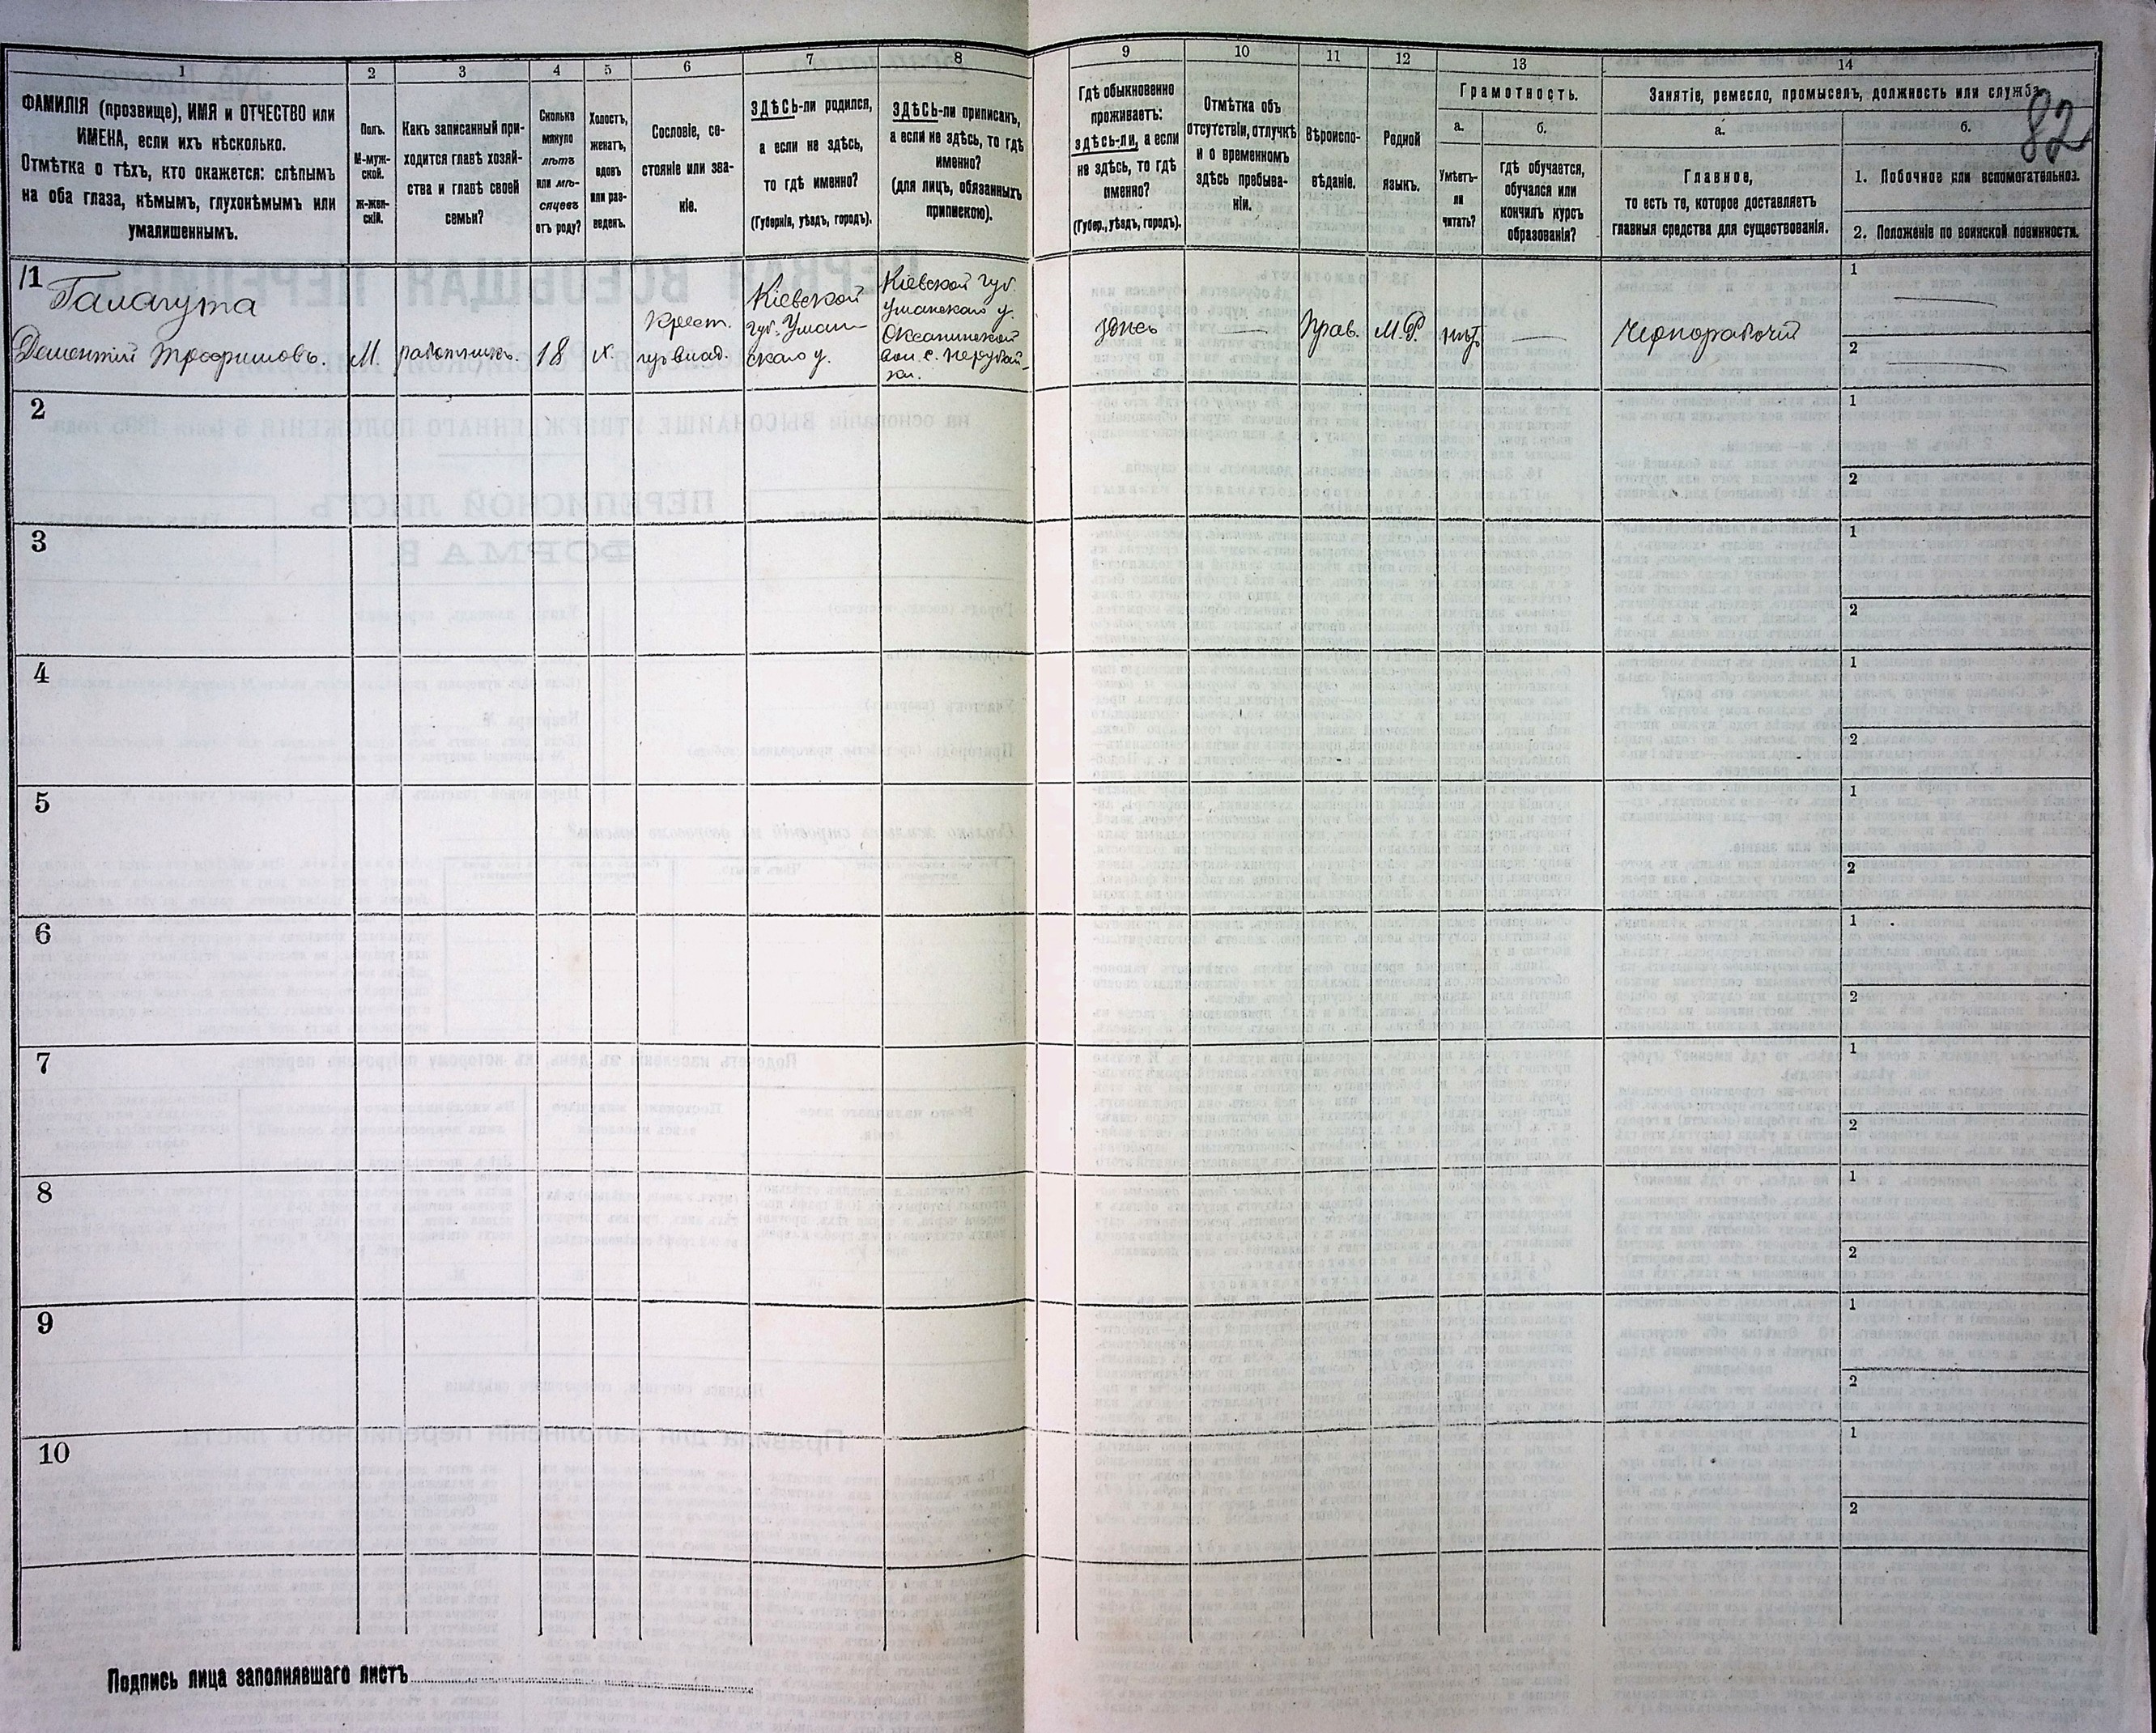 82
1
2
3
4
5
6
7
8
9
10
11
12
13
14
ФАМИЛІЯ (прозвище), ИМЯ и ОТЧЕСТВО или
ИМЕНА, если ихъ нѣсколько.
Отмѣтка о тѣхъ, кто окажется: слѣпымъ
на оба глаза, нѣмымъ, глухонѣмымъ или
умалишеннымъ.
Полъ.
М-муж-
ской.
ж-жен-
скій.
Какъ записанный при-
ходится главѣ хозяй-
ства и главѣ своей
семьи?
Сколько
минуло
лѣтъ
или мѣ-
сяцевъ
отъ роду?
Холостъ,
женатъ,
вдовъ
или раз-
веденъ.
Сословіе, со-
стояніе или зва-
ніе.
ЗДѢСЬ-ли родился,
а если не здѣсь,
то гдѣ именно?
(Губернія, уѣздъ, городъ).
ЗДѢСЬ-ли приписанъ,
а если не здѣсь, то гдѣ
именно?
(для лицъ, обязанныхъ
припискою).
Гдѣ обыкновенно
проживаетъ:
здѣсь-ли, а если
не здѣсь, то гдѣ
именно?
(Губер., уѣздъ, городъ).
Отмѣтка объ
отсутствіи, отлучкѣ
и о временномъ
здѣсь пребыва-
ніи.
Вѣроиспо-
вѣданіе.
Родной
языкъ.
Грамотность.
а.
Умѣетъ-
ли
читать?
б.
гдѣ обучается,
обучался или
кончилъ курсъ
образованія?
Занятіе, ремесло, промыселъ, должность или служба.
а.
Главное,
то есть то, которое доставляетъ
главныя средства для существованія.
б.
1. Побочное или вспомогательное.
2. Положеніе по воинской повинности.
1
Галагута
Дементій Трофимовъ.
М.
работникъ.
18
х.
Крест.
Кіевской
губ. Уман-
скаго у.
Кіевской губ.
Уманскаго у.
Оксанинской
вол. с.
здѣсь
Прав.
М.Р.
нѣтъ
Чернорабочій
1
2
2
1
2
3
1
2
4
1
2
5
1
2
6
1
2
7
1
2
8
1
2
9
1
2
10
1
2
Подпись лица заполнявшаго листъ